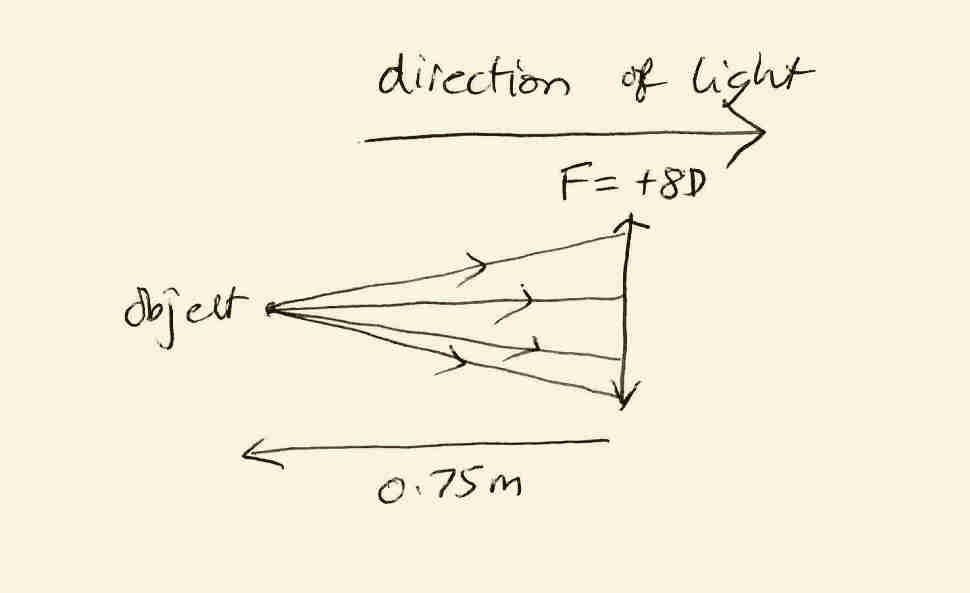 direction of light
F= +8D
object
0.75m